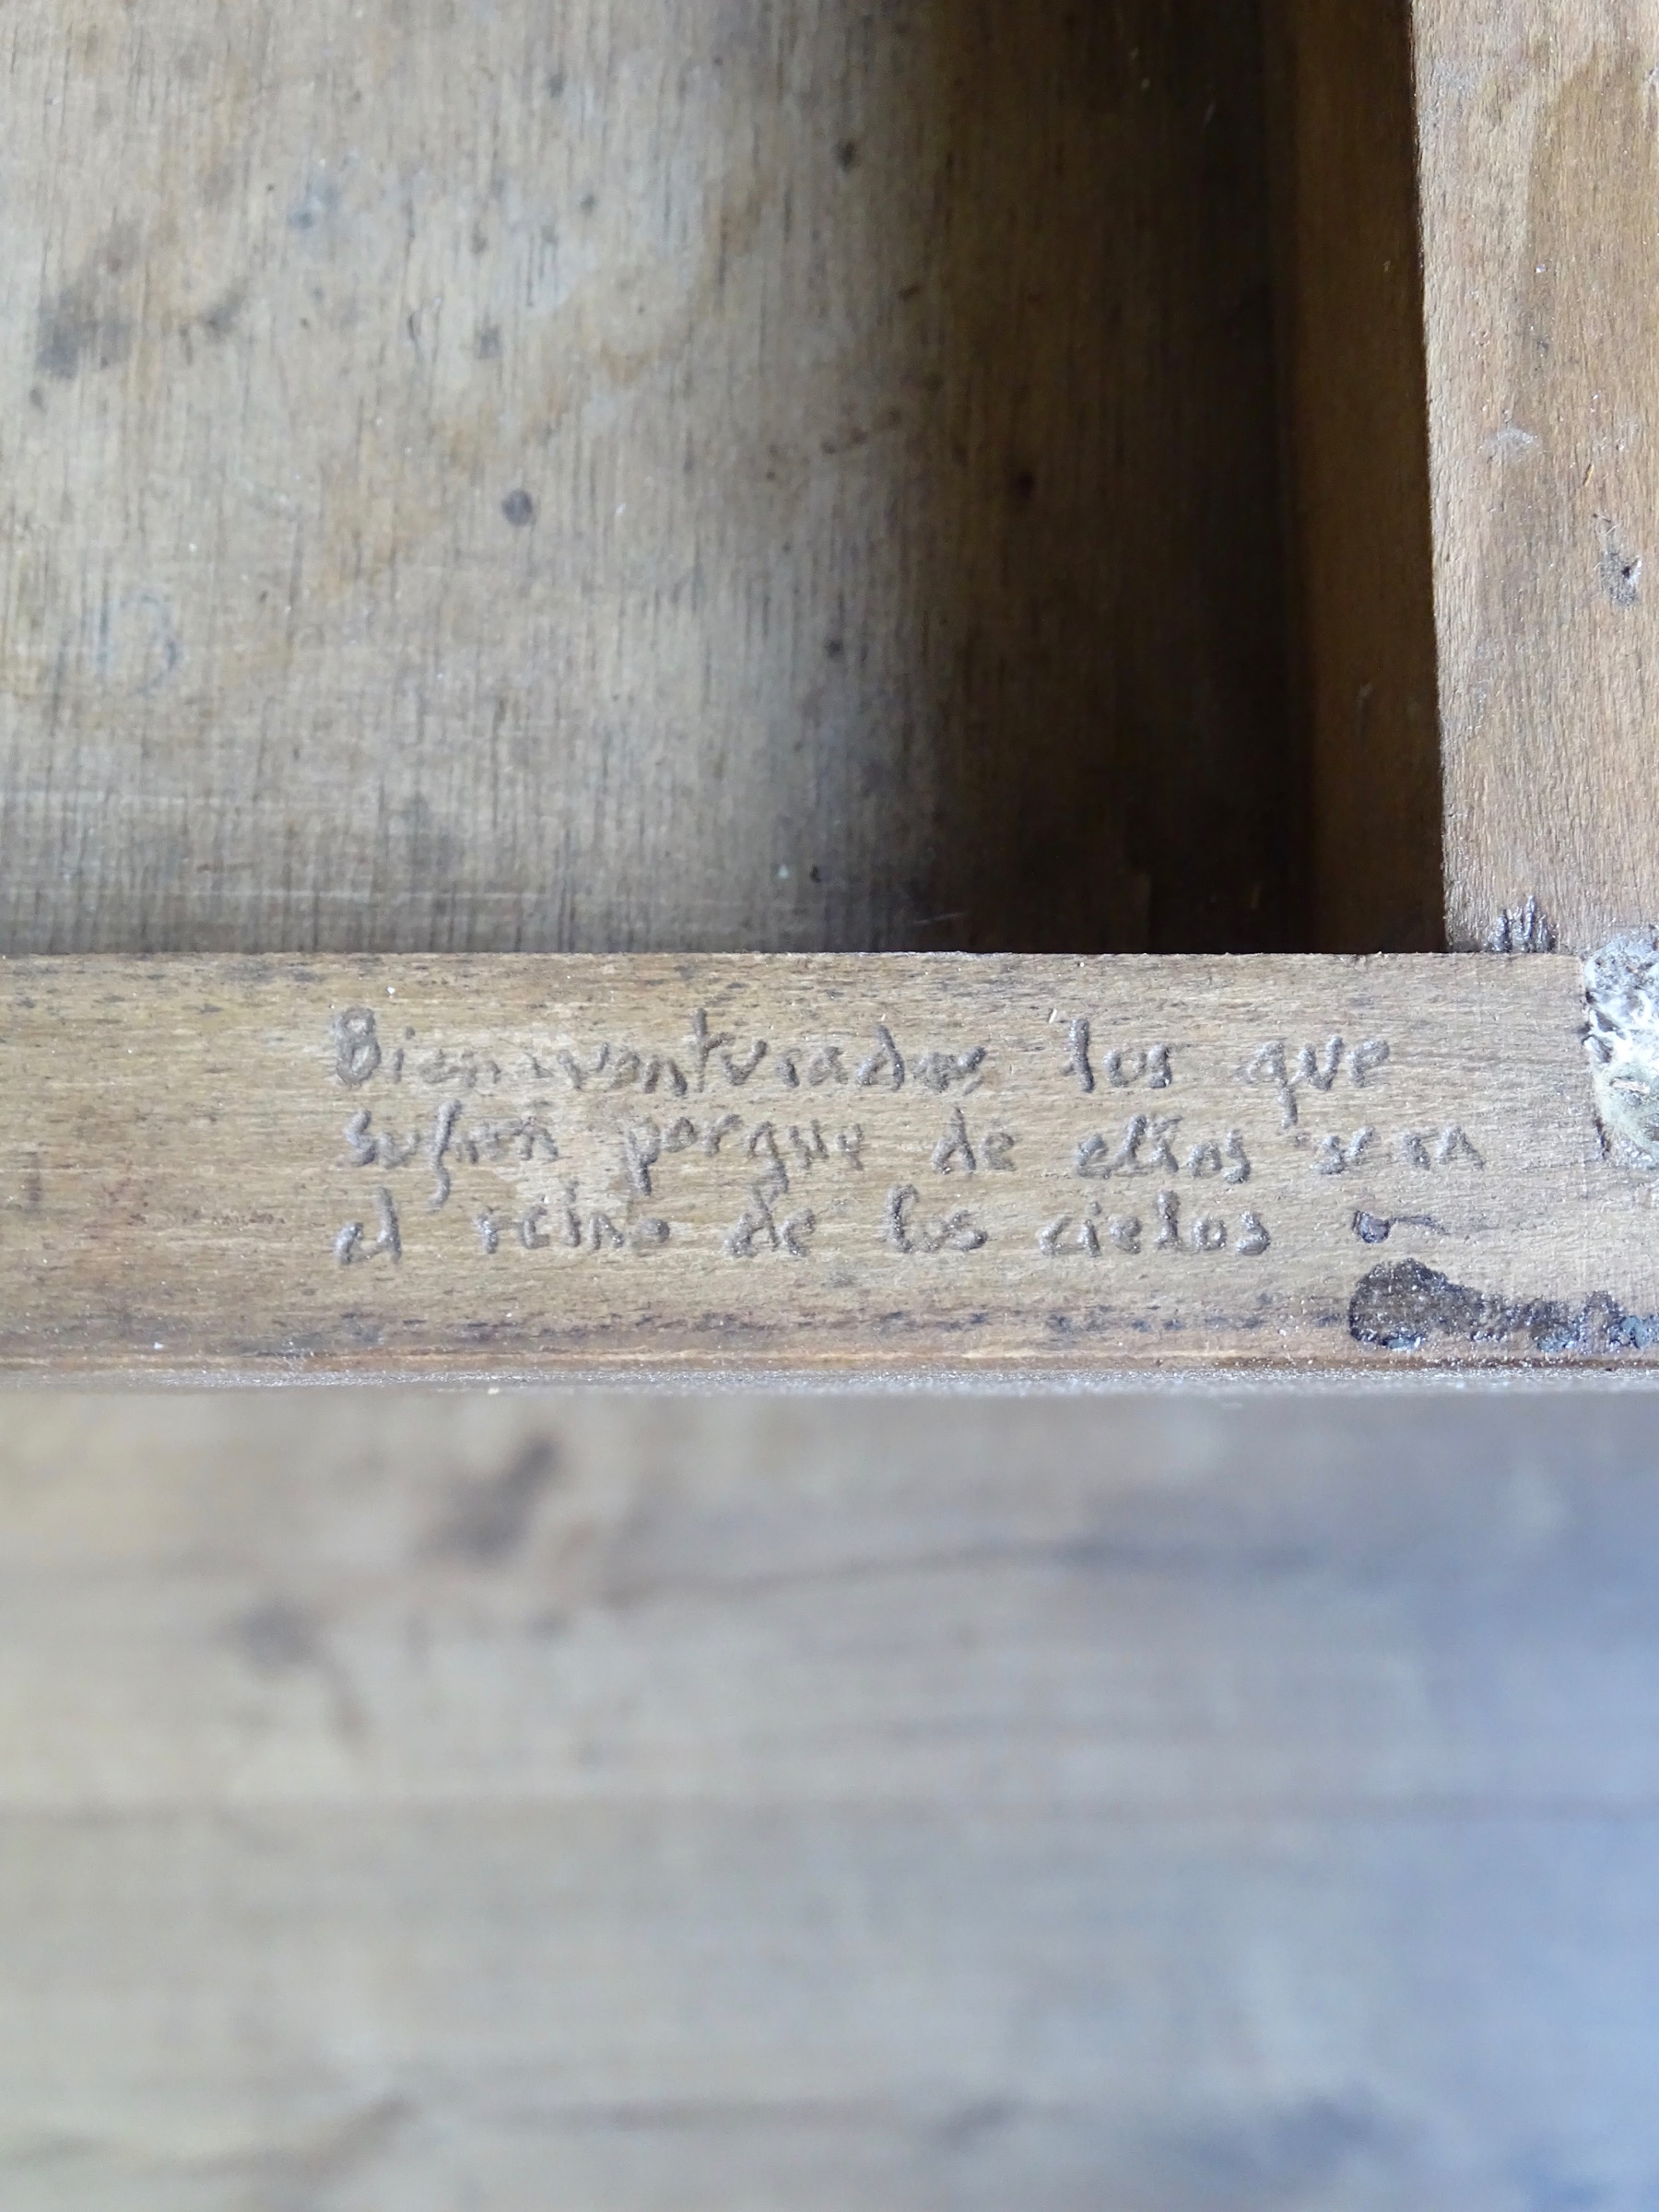 Bienaventurados los que
sufren porque de ellos sera
el reino de los cielos